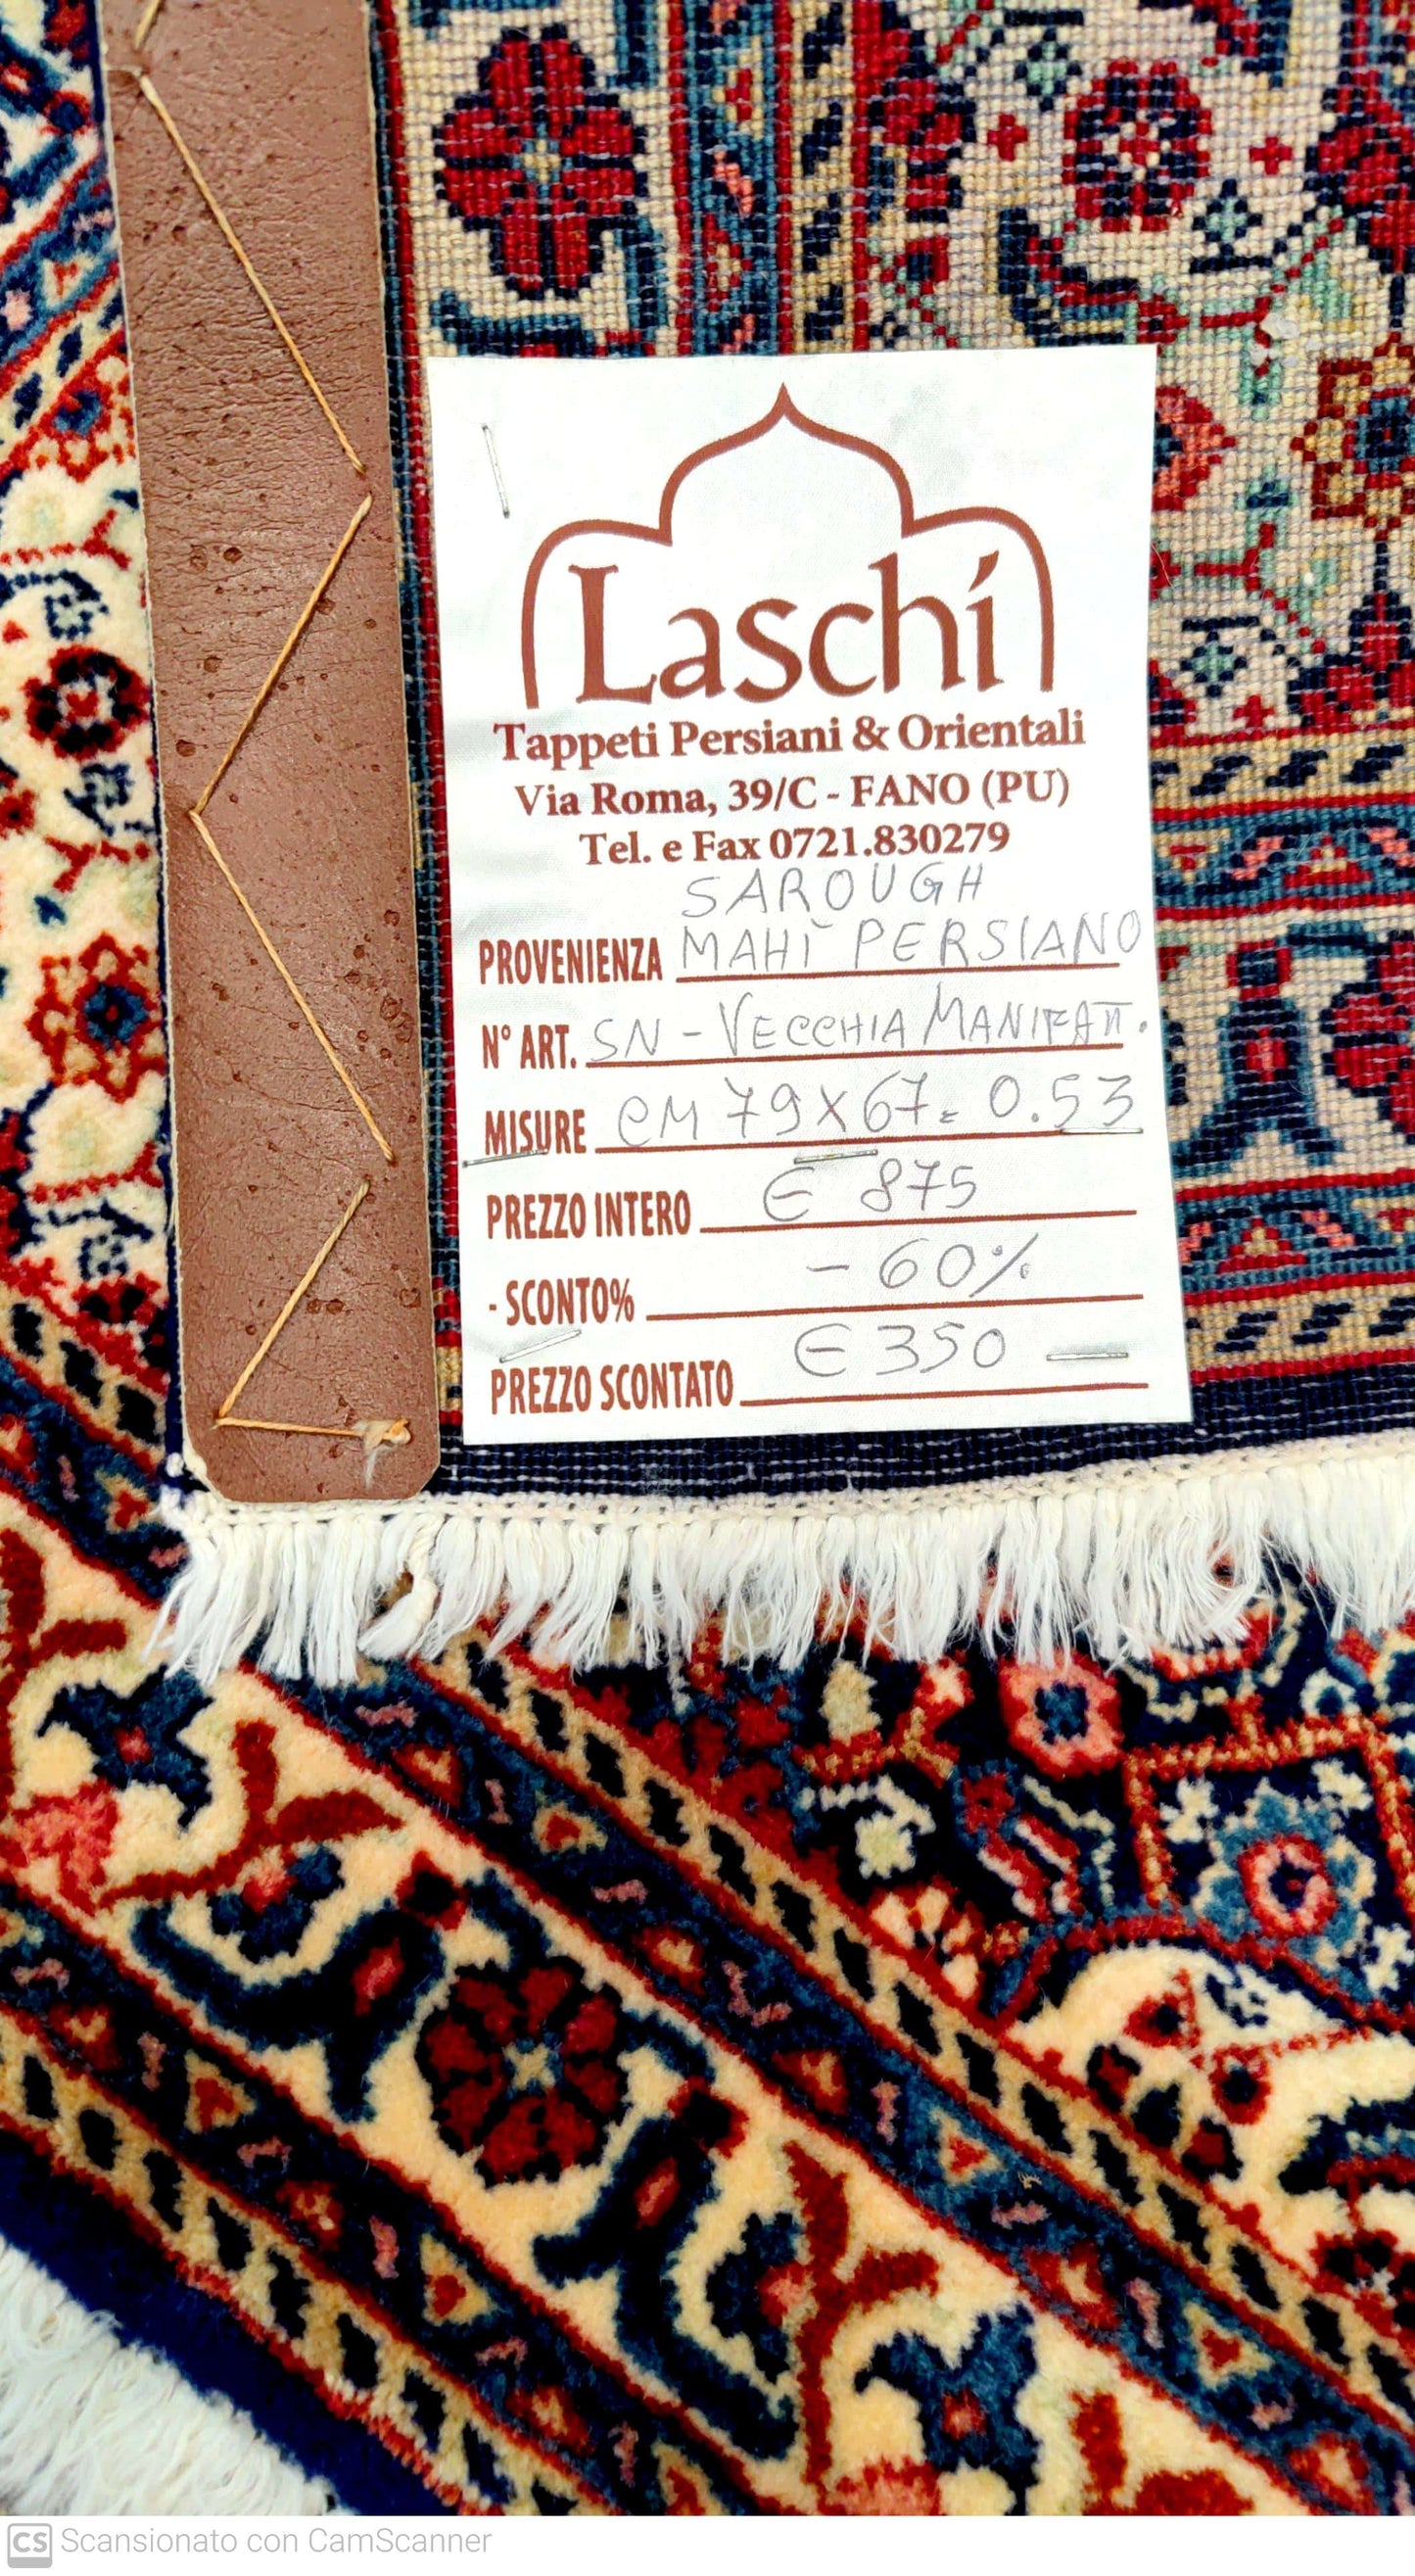 Laschí
Tappeti Persiani & Orientali
Via Roma, 39/C - FANO (PU)
Tel. e Fax 0721.830279
SAROUGH
PROVENIENZA MAHÌ PERSIANO
N° ART. SN - VECCHIA MANIFATT.
MISURE CM 79X67= 0.53
PREZZO INTERO € 875
- SCONTO% - 60%
PREZZO SCONTATO € 350 
CS Scansionato con CamScanner